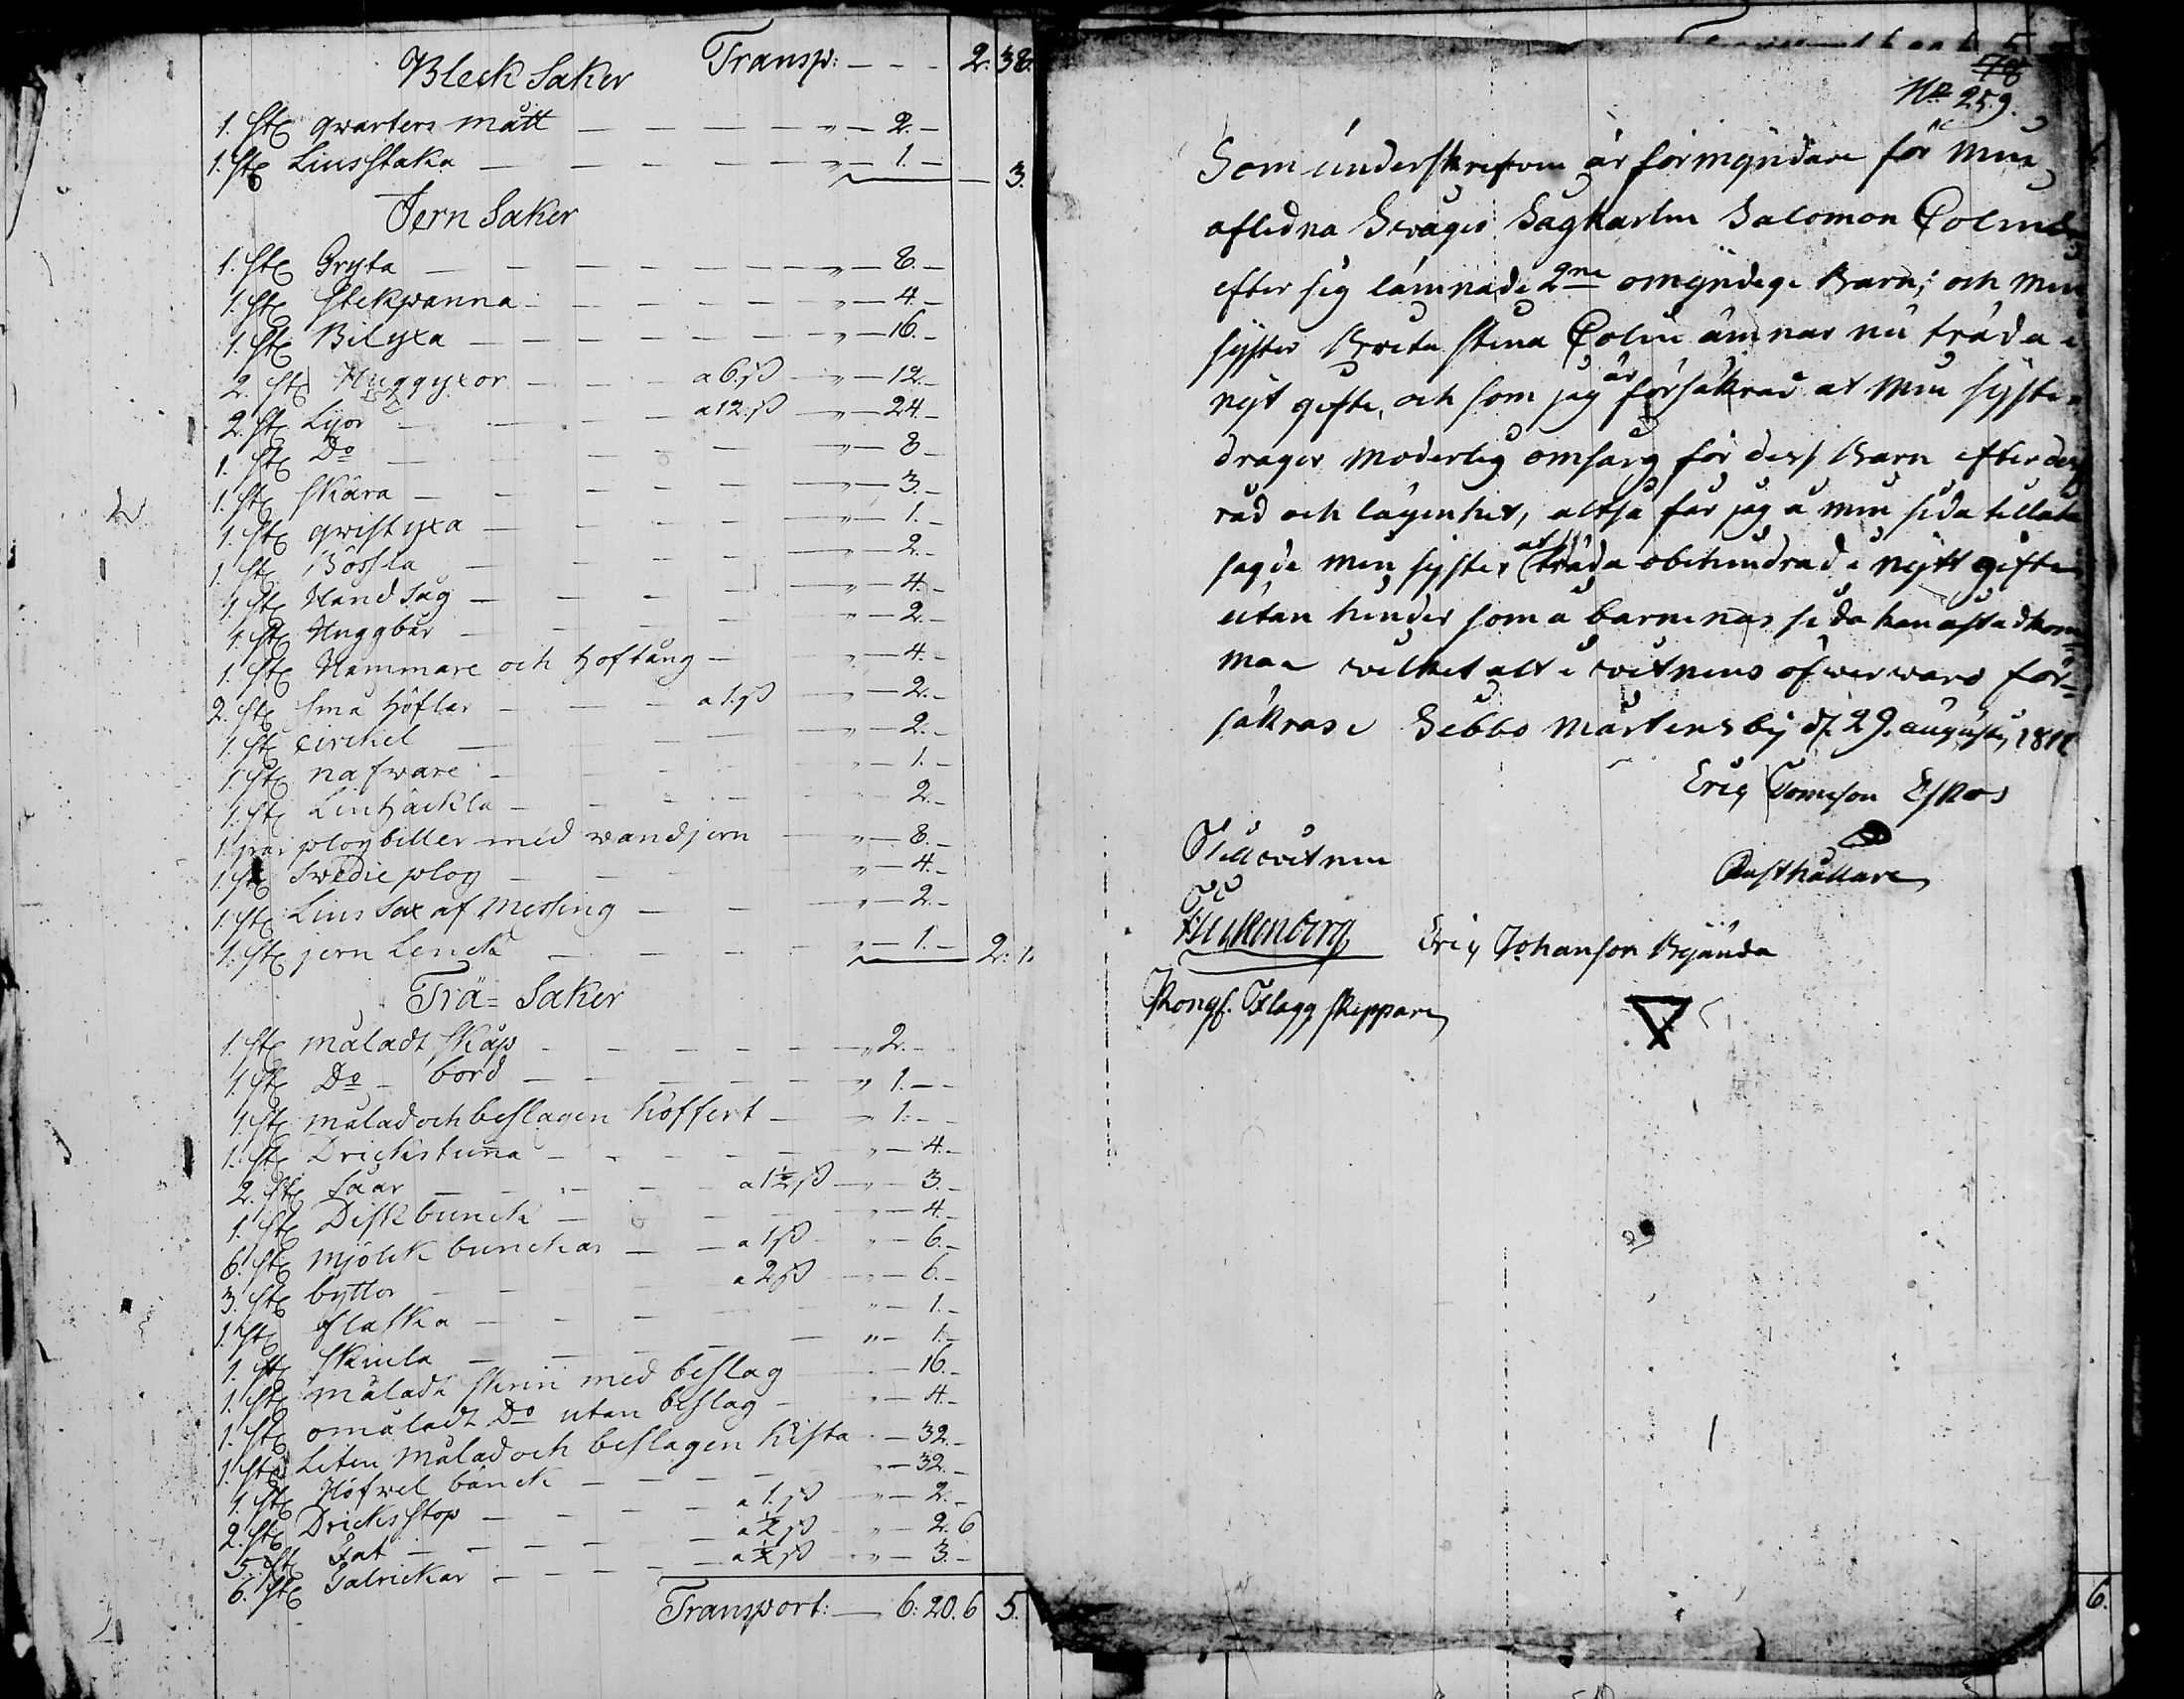 Bleck Saker Transp: — — — 2. 38.
1. st qwarters mått — — — — — „ — 2. —
1. st Liusstaka — — — — — „ — 1. — — 3.
Jern Saker
1. st Gryta — — — — — — „ — 8. —
1. st stekpanna — — — — — „ — 4. —
1. st Bilyxa — — — — — — „ — 16. —
2. st Huggyxor — — — a 6. sß — „ — 12. —
2. st Lijor — — — a 12. sß — „ — 24. —
1. st Do — — — — — „ — 8 —
1. st skära — — — — — „ — 3. —
1. st qwistyxa — — — — — „ — 1. —
1. st Bössla — — — — — „ — 2. —
1. st Hand såg — — — — „ — 4. —
1. st Huggbår — — — — „ — 2. —
1. st Hammare och Hoftång — „ — 4. —
2. st små Höflar — — — a 1. sß — „ — 2. —
1. st circkel — — — — — „ — 2. —
1. st nafware — — — — „ — 1. —
1. st Linhäckla — — — — 2. —
1. par plogbiller med wandjern — „ — 8. —
1. st Swedie plog — — — „ — 4. —
1. st Lius Sax af Messing — — „ — 2. —
1. st jern Lenck — — — — „ — 1. — 2: 1.
Trä= Saker
1. st måladt skåp — — — — — „ 2. — —
1. st Do — bord — — — — — „ 1. — —
1. st målad och beslagen koffert — „ 1. — —
1. st Drickstuna — — — — „ — 4. —
2. st Såar — — — — a 1½ sß — „ — 3. —
1. st Diskbunck — — — — „ — 4. —
6. st Mjölckbunckar — — a 1 sß — „ — 6. —
3. st byttor — — — a 2 sß — „ — 6. —
1. st flaska — — — — „ — 1. —
1. st skiula — — — — „ — 1. —
1. st måladt skrin med beslag — 16. —
1. st omåladt Do utan beslag — „ — 4. —
1. st Liten målad och beslagen kista — 32. —
1. st Höfwel bänck — — — — „ — 32. —
2. st Dricksstop — — — a 1. sß — „ — 2. —
5. st Fat — — — — a ½ sß — „ — 2. 6
6. st Talrickar — — — — a ½ sß — „ — 3. —
Transport: — 6: 20. 6 5.
No 259.
Som underskrefven är förmyndare för min
afledna Swåger Sågkarlen Salomon Colin
efter sig lämnade 2ne omyndige Barn; och min
syster Brita Stina Colin ämnar nu träda i
nyt gifte, och som jag är försäkrad at min syster
drager moderlig omsorg för dess Barn efter dess
råd och lägenhet, altså får jag å min sida tillåta
sagde min syster at träda obehindrad i nytt gifte
utan hinder som å barnenas sida kan åstadkom
mas wilket alt i witnens öfwerwaro för=
säkras. Sebbo Mårtensby d. 29. augusty 181
Eric Tomeson Eskos
Till witnen
Rusthållare
Eric Johanson Bjända
Kongl. Flagg skeppare
6.